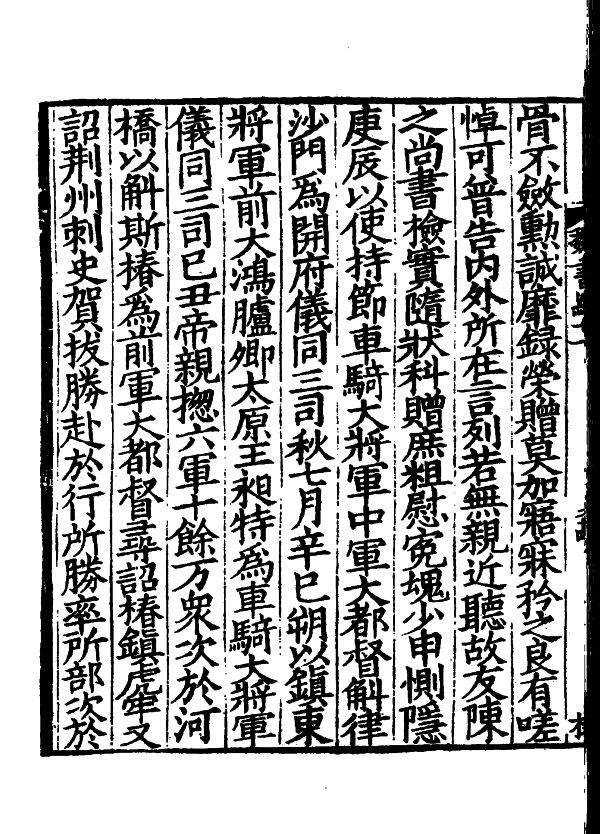 骨不斂勲誠靡録榮贈莫加寤寐矜之良有嗟
悼可普告内外所在言列若無親近聽故友陳
之尚書檢實隨狀科贈庶粗慰寃魂少申惻隱
庚辰以使持節車騎大將軍中軍大都督斛律
沙門爲開府儀同三司秋七月辛巳朔以鎮東
將軍前大鴻臚卿太原王昶特爲車騎大將軍
儀同三司己丑帝親揔六軍十餘万衆次於河
橋以斛斯椿爲前軍大都督尋詔椿鎮虎牢又
詔荆州刺史賀拔勝赴於行所勝率所部次於